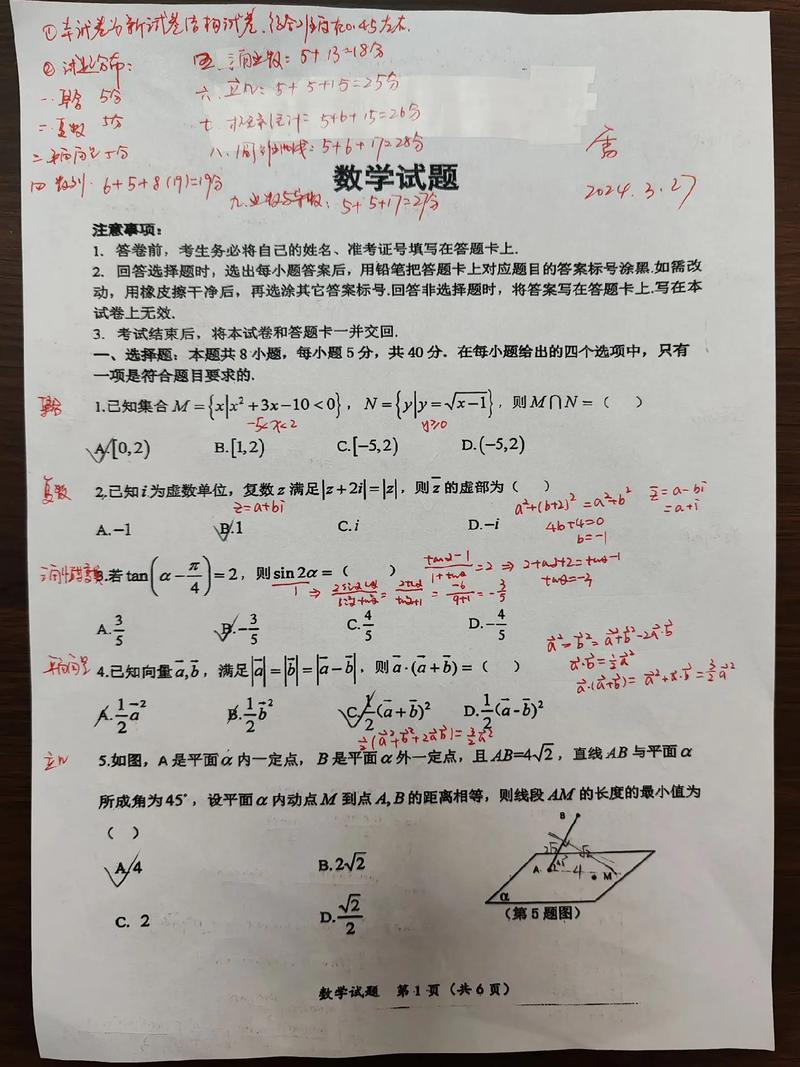 ①本试卷为新试卷结构试卷,综合难度在0.45左右.
②试题分布:
一.集合 5分
二.复数 5分
三.平面向量 5分
四.数列. 6+5+8(19)=19分
五.三角函数: 5+13=18分
六.立几: 5+5+15=25分
七.概率统计: 5+6+15=26分
八.圆锥曲线: 5+6+17=28分
九.函数与导数: 5+5+17=27分
2024.3.27
数学试题
注意事项:
1. 答卷前,考生务必将自己的姓名、准考证号填写在答题卡上.
2. 回答选择题时,选出每小题答案后,用铅笔把答题卡上对应题目的答案标号涂黑.如需改
动,用橡皮擦干净后,再选涂其它答案标号.回答非选择题时,将答案写在答题卡上.写在本
试卷上无效.
3. 考试结束后,将本试卷和答题卡一并交回.
一、选择题:本题共8小题,每小题5分,共40分.在每小题给出的四个选项中,只有
一项是符合题目要求的.
集合 1.已知集合 M={x|x²+3x-10<0}, N={y|y=√(x-1)},则M∩N=( )
-5<x<2 y≥0
A.[0,2) B.[1,2) C.[-5,2) D.(-5,2)
复数 2.已知i为虚数单位,复数z满足|z+2i|=|z|,则z̄的虚部为( )
z=a+bi a²+(b+2)²=a²+b² z̄=a-bi
=a+i
4b+4=0
b=-1
A.-1 B.1 C.i D.-i
3.若tan(α-π/4)=2,则sin2α=( )
(tanα-1)/(1+tanα)=2 ⇒ 2tanα+2=tanα-1
tanα=-3
A.3/5 B.-3/5 C.4/5 D.-4/5
平面向量 4.已知向量a⃗,b⃗,满足|a⃗|=|b⃗|=|a⃗-b⃗|,则a⃗·(a⃗+b⃗)=( )
a⃗²=b⃗²=a⃗²+b⃗²-2a⃗·b⃗
a⃗·b⃗=½a⃗²
a⃗·(a⃗+b⃗)=a⃗²+a⃗·b⃗=3/2a⃗²
A.1/2a⃗² B.1/2b⃗² C.1/2(a⃗+b⃗)² D.1/2(a⃗-b⃗)²
½(a⃗²+b⃗²+2a⃗b⃗)=3/2a⃗²
立几 5.如图,A是平面α内一定点,B是平面α外一定点,且AB=4√2,直线AB与平面α
所成角为45°,设平面α内动点M到点A,B的距离相等,则线段AM的长度的最小值为
( )
A.4 B.2√2
C. 2 D.√2/2
B
A
M
4
α
(第5题图)
数学试题 第1页(共6页)